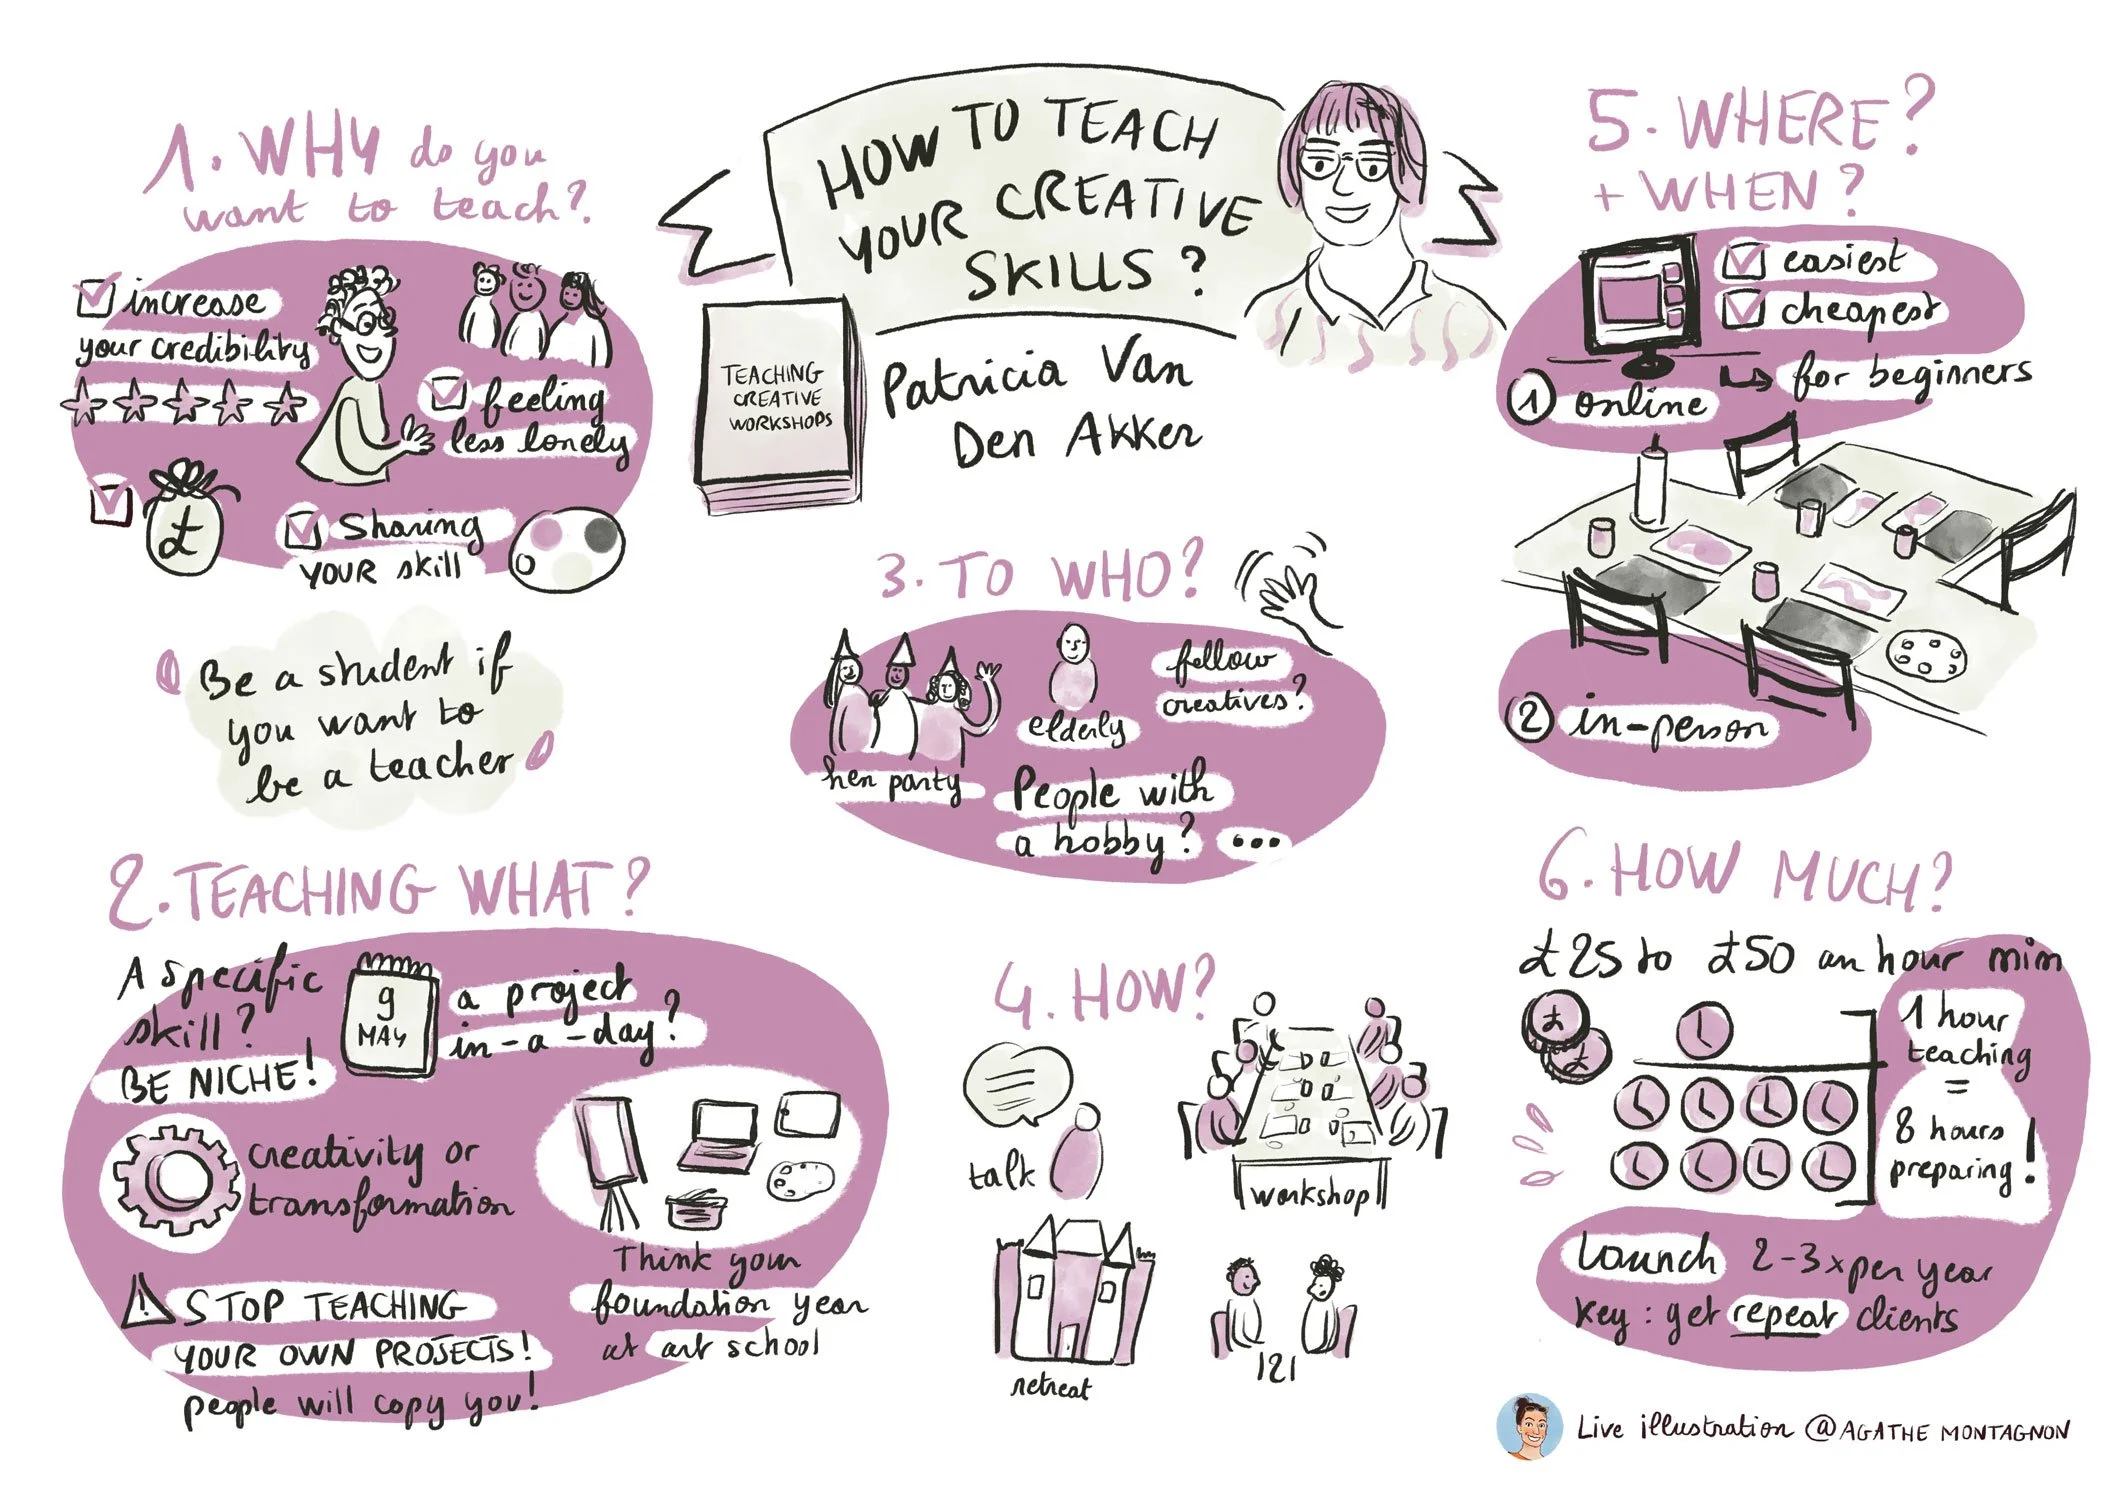 HOW TO TEACH
YOUR CREATIVE
SKILLS?
TEACHING
CREATIVE
WORKSHOPS
Patricia Van
Den Akker
1. WHY do you
want to teach?
increase
your credibility
feeling
less lonely
£
Sharing
YOUR skill
Be a student if
you want to
be a teacher
2. TEACHING WHAT?
A specific
skill?
BE NICHE!
9
MAY
a project
in-a-day?
creativity or
transformation
Think your
foundation year
at art school
! STOP TEACHING
YOUR OWN PROJECTS!
people will copy you!
3. TO WHO?
hen party
elderly
fellow
creatives?
People with
a hobby? ...
4. HOW?
talk
workshop
retreat
121
5. WHERE?
+ WHEN?
easiest
cheapest
for beginners
1 online
2 in-person
6. HOW MUCH?
£25 to £50 an hour min
£
£
1 hour
teaching
=
8 hours
preparing!
Launch 2-3x per year
Key: get repeat clients
Live illustration @AGATHE MONTAGNON